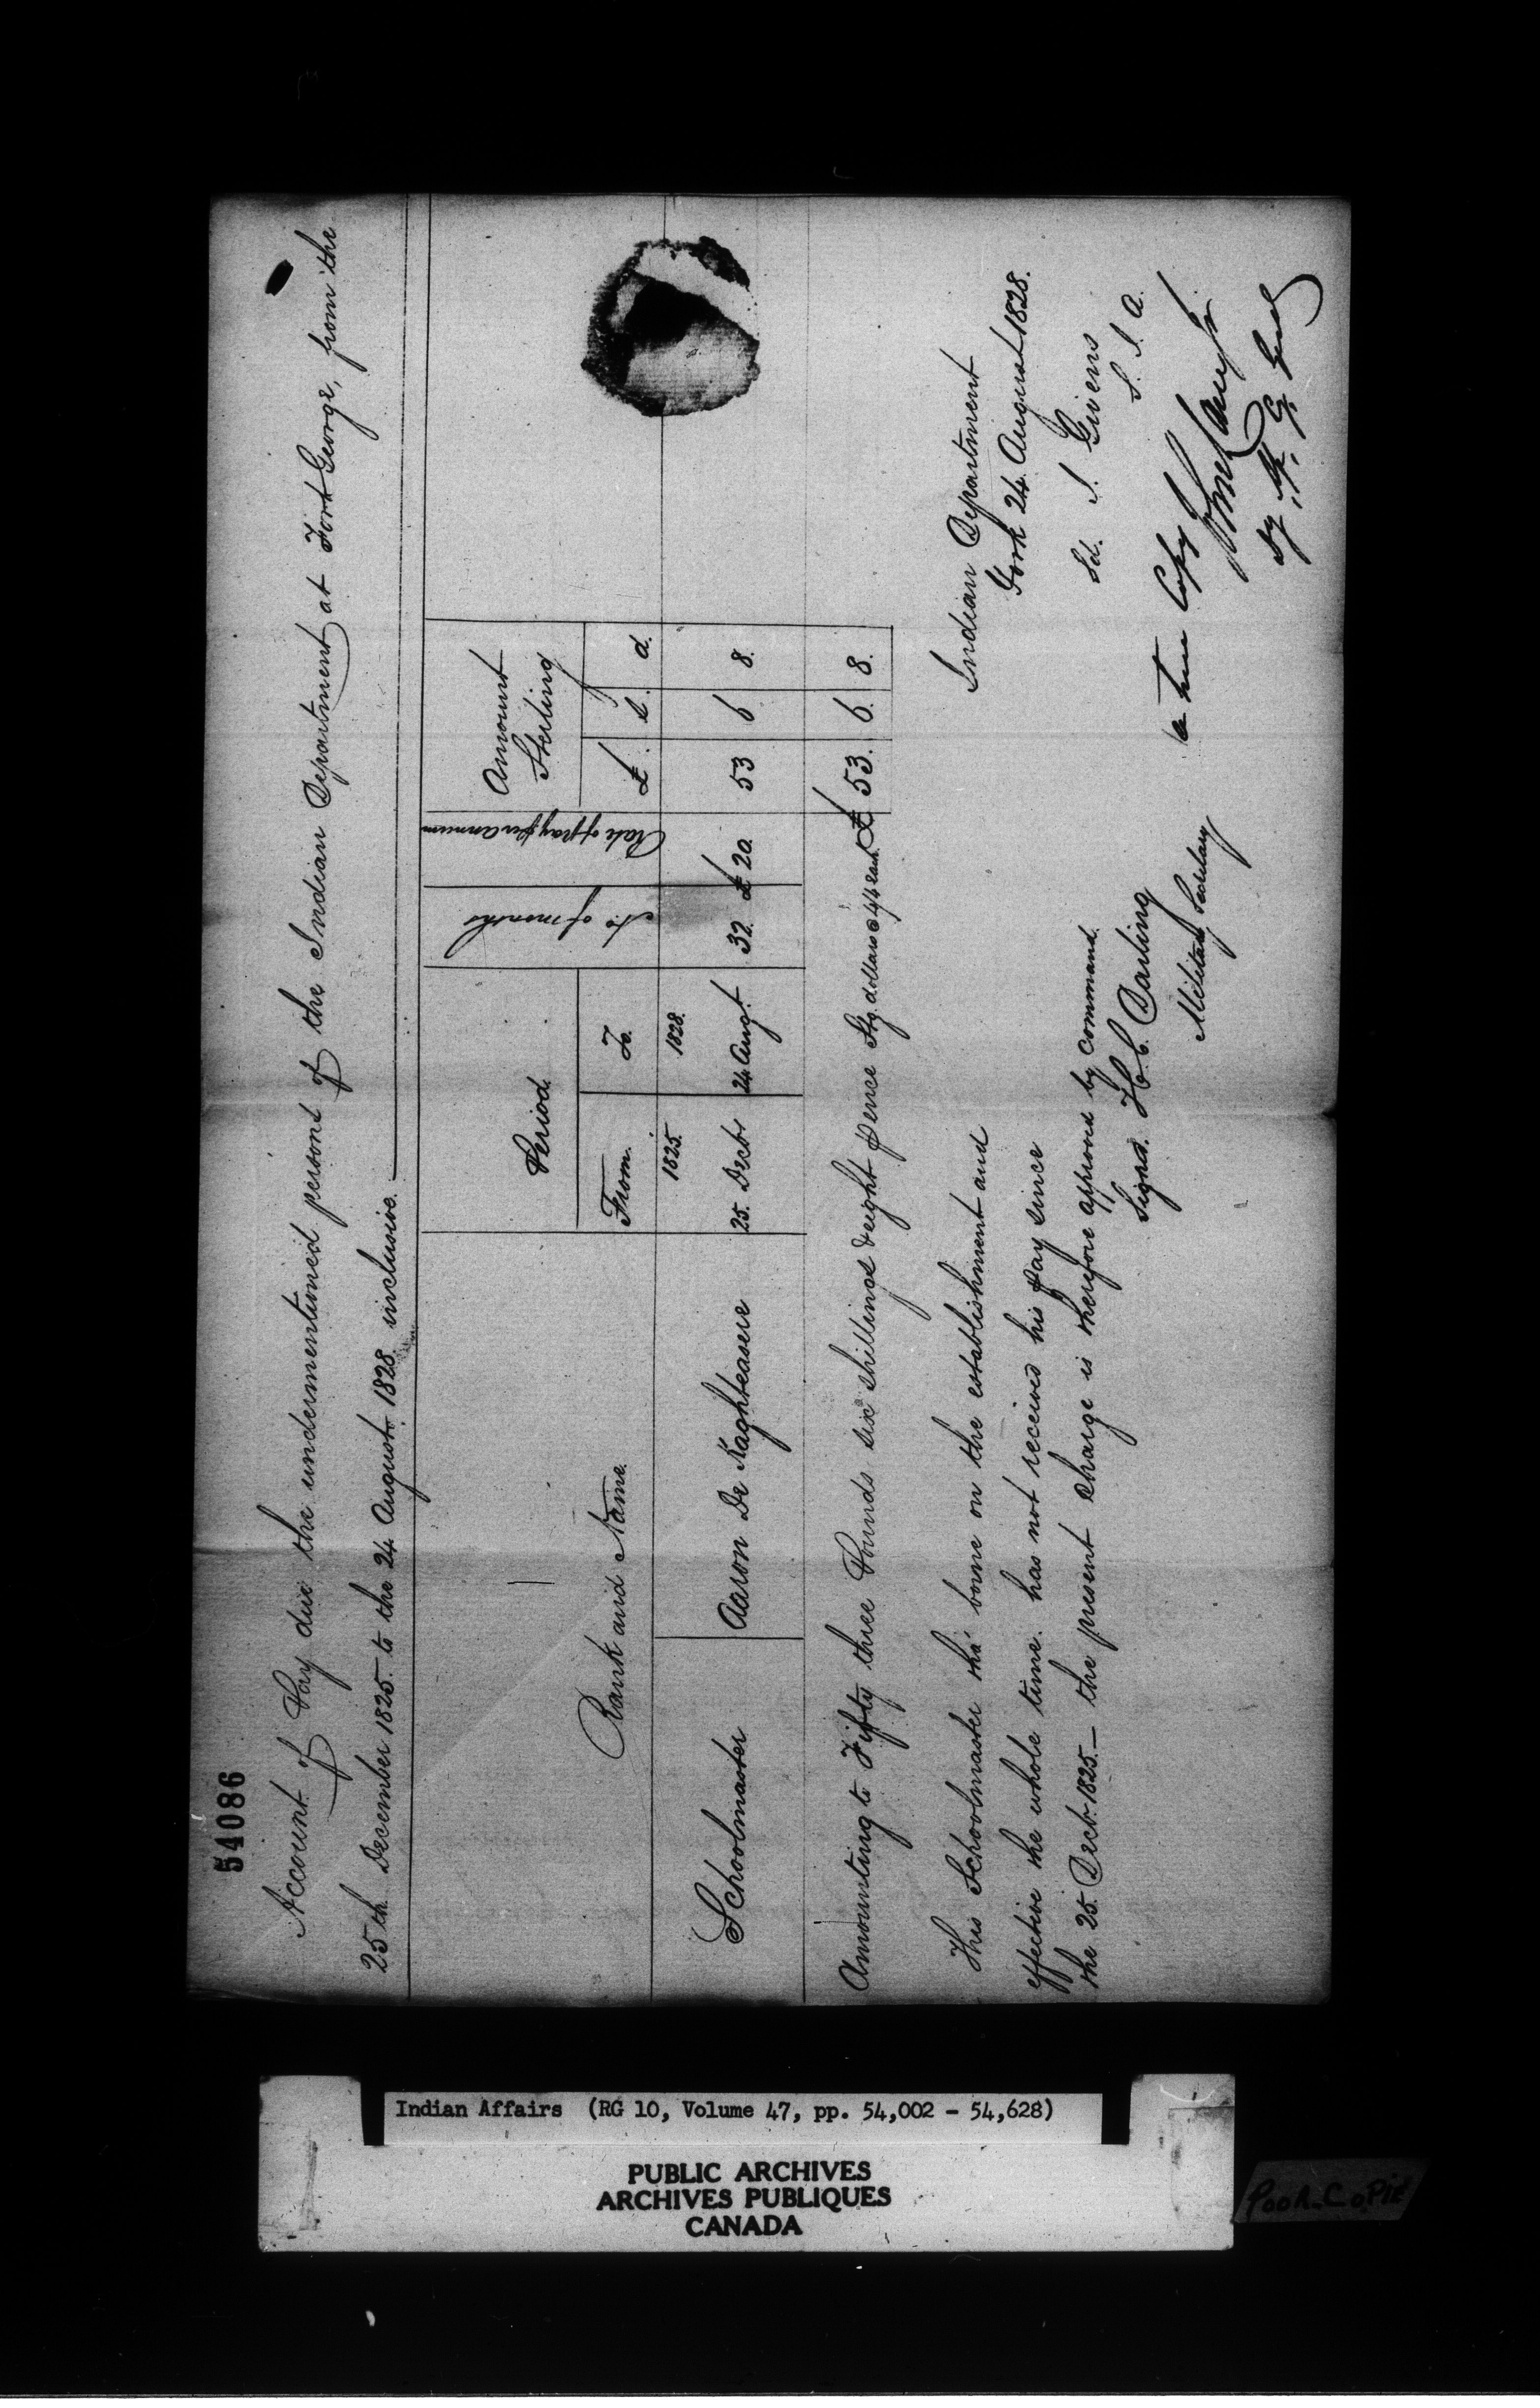 54086
Account of Pay due the undermentioned persons of the Indian Department at Fort George, from the
25th December 1825 to the 24 August 1828 inclusive.
Rank and Name.
Period.
From.
To.
No of months
Rate of pay per annum
Amount Sterling
£. s. d.
1825. 1828.
Schoolmaster Aaron De Kaghteasere 25. Decbr 24 Augt. 32. £20. 53 6 8.
Amounting to Fifty three Pounds six shillings & eight pence Stg. dollars @ 4/4 each £ 53. 6. 8.
This Schoolmaster tho' borne on the establishment and
effective the whole time. has not received his pay since
the 25. Decbr 1825. — the present charge is therefore approved by command.
Signd. H. C. Darling
Military Secretary
Indian Department
York 24. August 1828.
Sd. J. Givens
S. I. A.
a true Copy
Dy
Indian Affairs (RG 10, Volume 47, pp. 54,002 - 54,628)
PUBLIC ARCHIVES
ARCHIVES PUBLIQUES
CANADA
POOR COPIE